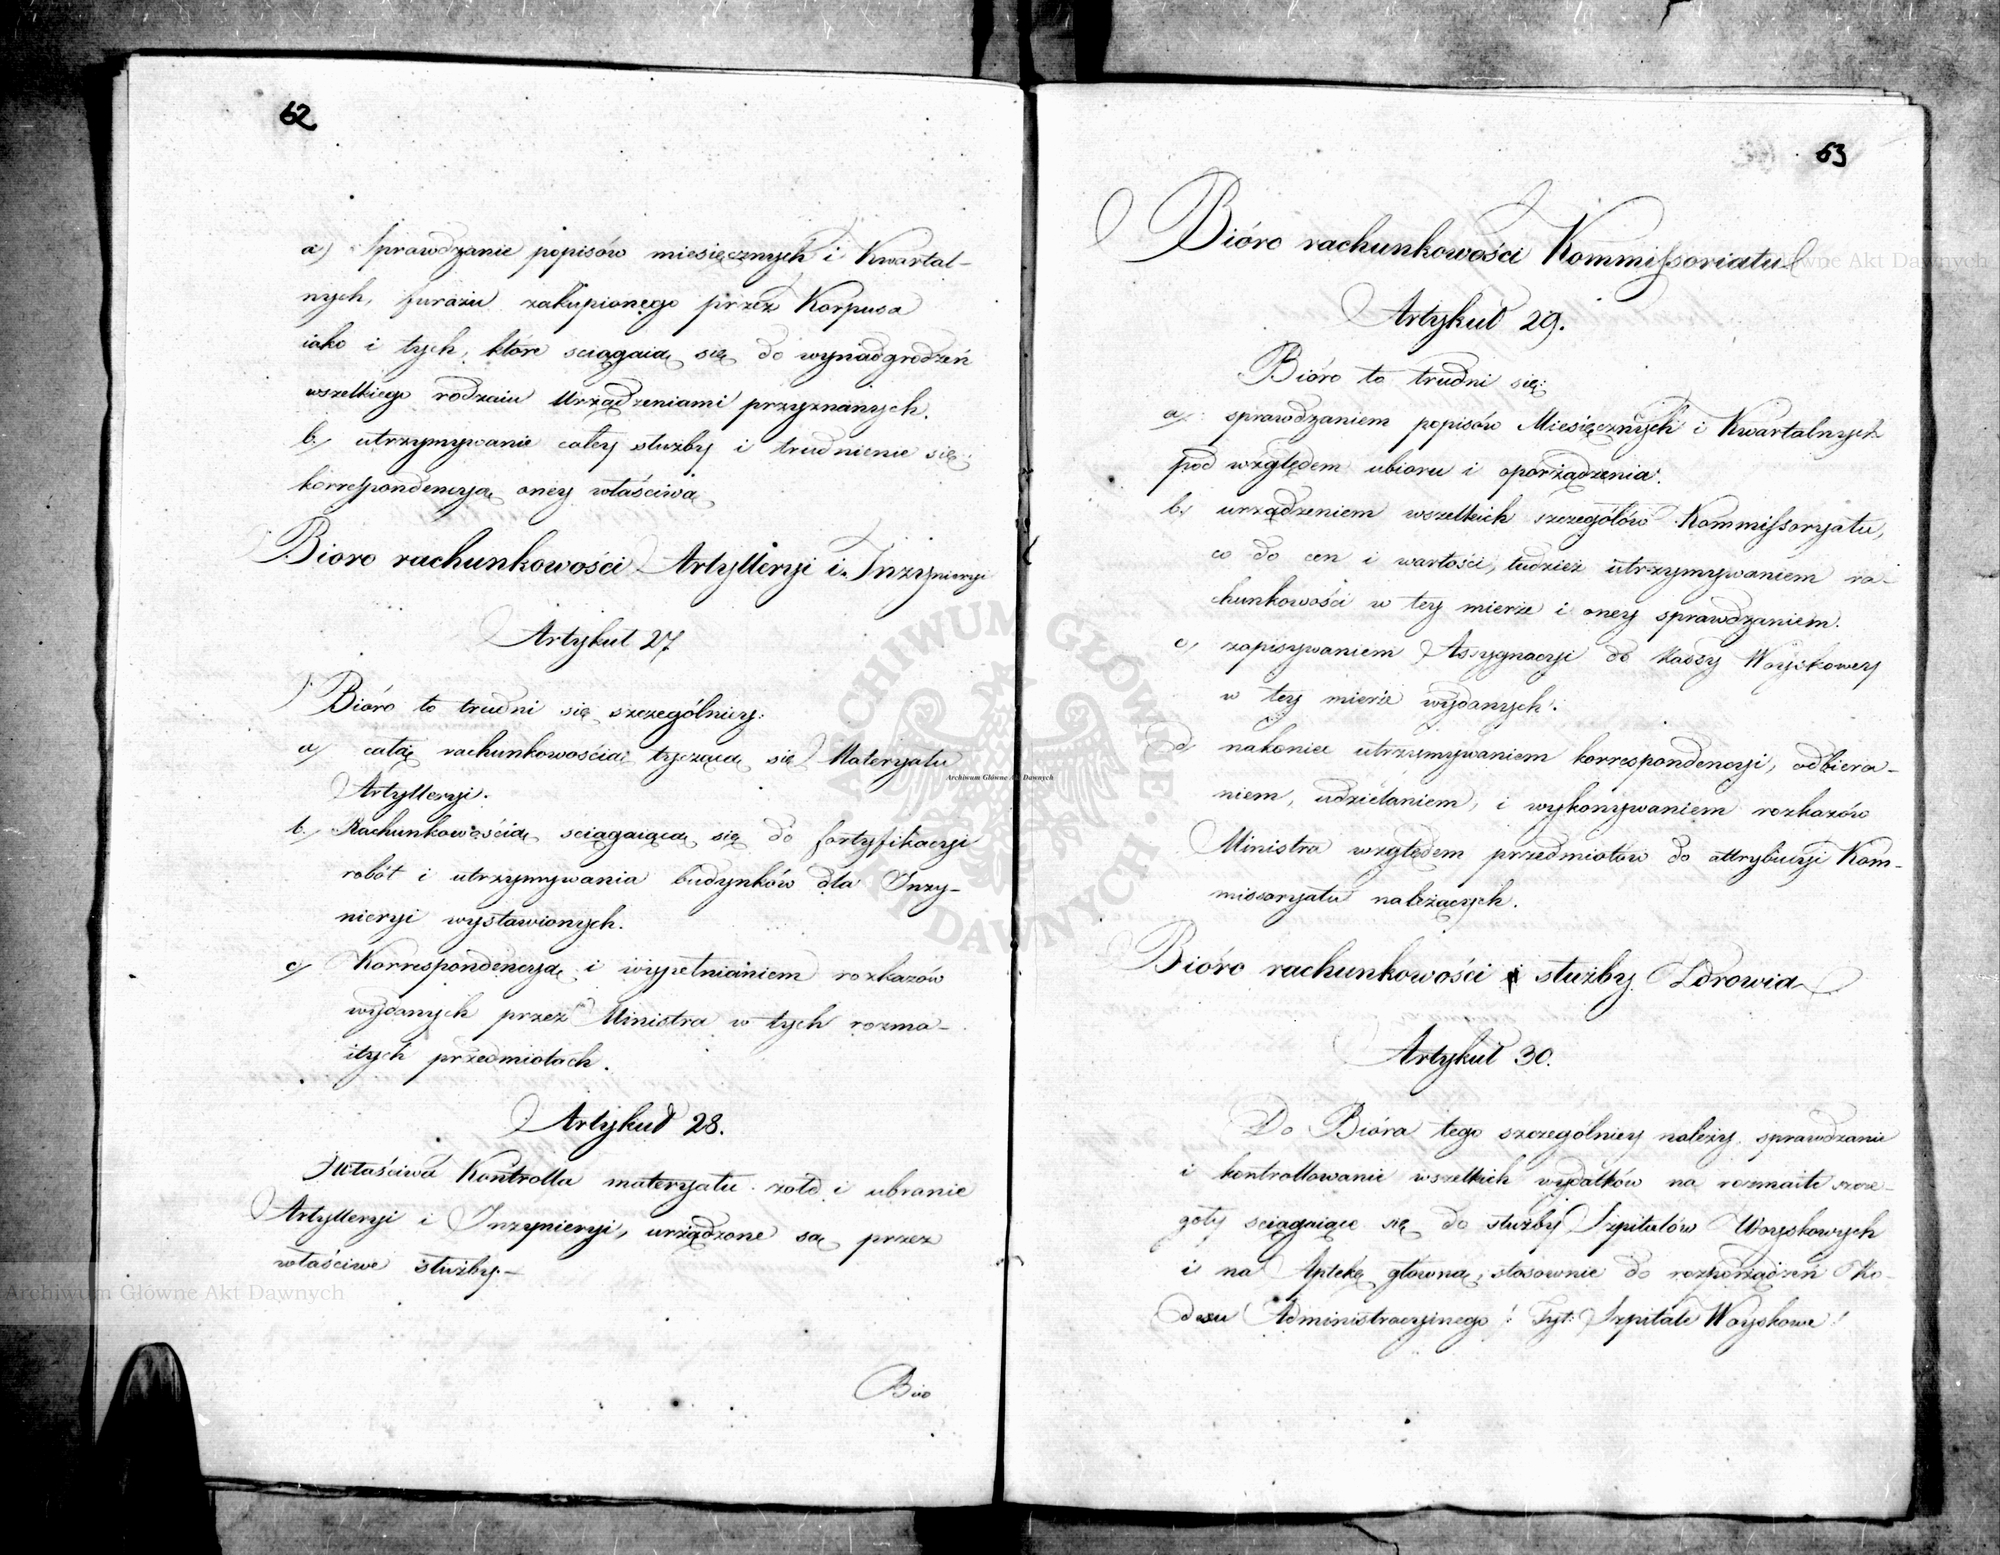 62
a) Sprawdzanie popisów miesięcznych i Kwartal-
nych, furażu zakupionego przez Korpusa
iako i tych, które sciągaią się do wynadgrodzeń
wszelkiego rodzaiu Urządzeniami przyznanych.
b, utrzymywanie całey służby i trudnienie się
korrespondencyą oney właściwą
Bioro rachunkowości Artylleryi i Inzynieryi
Artykuł 27
Bióro to trudni się szczególniey:
a) całą rachunkowością tyczącą się Materyału
Artylleryi.
b, Rachunkowością sciągaiącą się do fortyfikacyi
robót i utrzymywania budynków dla Inzy-
nieryi wystawionych.
c) Korrespondencyą i wypełnianiem rozkazów
wydanych przez Ministra w tych rozma-
itych przedmiotach.
Artykuł 28.
Właściwa Kontrolla materyału żołd i ubranie
Artylleryi i Inzynieryi, urządzone są przez
właściwe służby.-
Bió
63
Bióro rachunkowości Kommissoriatu
Artykuł 29.
Bióro to trudni się:
a, sprawdzaniem popisów Miesięcznych i Kwartalnych
pod względem ubioru i oporządzenia.
b, urządzeniem wszelkich szczegółów Kommissoryatu,
co do cen i wartości, tudzież utrzymywaniem ra-
chunkowości w tey mierze i oney sprawdzaniem.
c, zapisywaniem Assygnacyi do Kassy Woyskowey
w tey mierze wydanych.
d, nakoniec utrzymywaniem korrespondencyi, odbiera-
niem, udzielaniem, i wykonywaniem rozkazów
Ministra względem przedmiotów do attrybucyi Kom-
missoryatu należących.
Bióro rachunkowości służby Zdrowia
Artykuł 30.
Do Bióra tego szczególniey należy sprawdzanie
i kontrollowanie wszelkich wydatków na rozmaite szcze-
góły sciągaiące się do służby Szpitalów Woyskowych
i na Aptekę główną, stosownie do rozporządzeń Ko-
dexu Administracyinego /: Tyt: Szpitale Woyskowe :/
Archiwum Główne Akt Dawnych
ARCHIWUM GŁÓWNE AKT DAWNYCH
Archiwum Główne Akt Dawnych
Główne Akt Dawnych